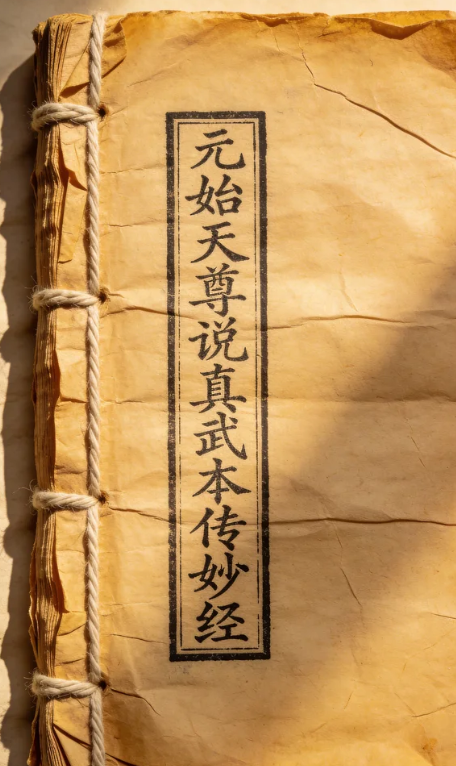 元始天尊说真武本传妙经